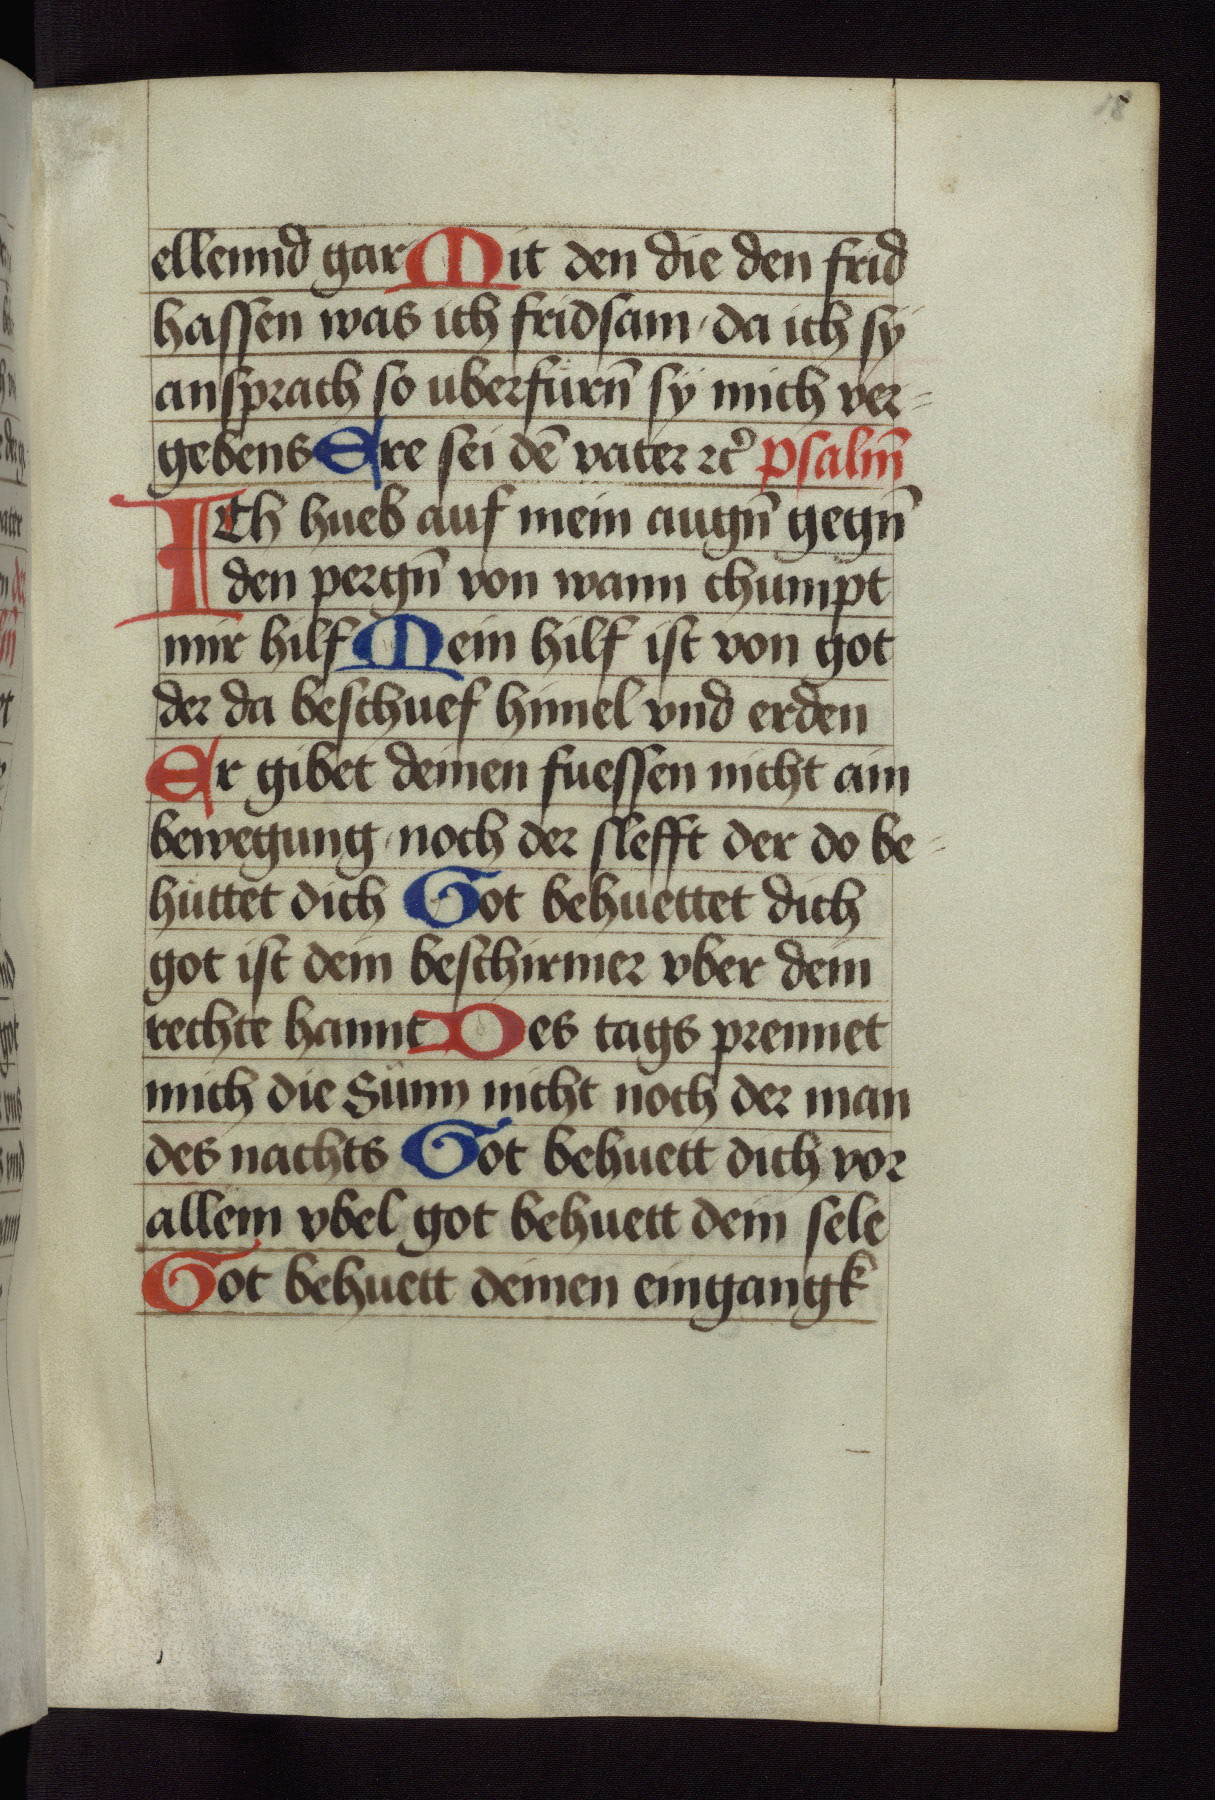 18
ellennd gar Mit den die den frid
hassen was ich fridsam / da ich sÿ
ansprach so uberfürn̄ sÿ mich ver=
gebens Ere sei dē vater ꝛc̄ psalm̄
Ich hueb auf mein augn̄ gegn̄
den pergn̄ von wann chumpt
mir hilf Mein hilf ist von got
der da beschuef himel vnd erden
Er gibet deinen fuessen nicht ain
bewegung / noch der slefft der do be=
hüttet dich Got behuettet dich
got ist dein beschirmer vber dein
rechte hannt Des tags prennet
mich die Sünn nicht noch der man
des nachts Got behuett dich vor
allem vbel got behuett dein sele
Got behuett deinen eingangk